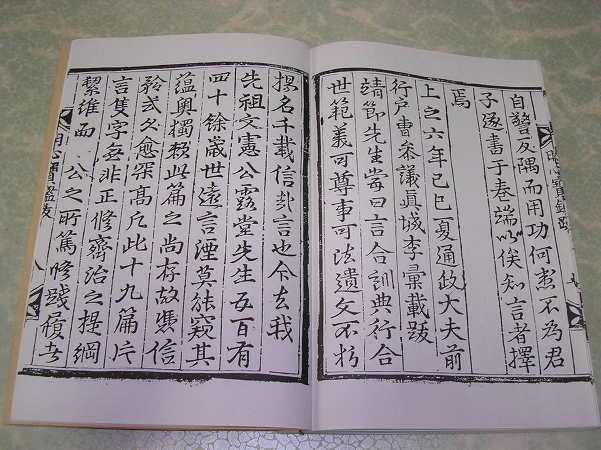 自警反隅而用功何患不為君
子遂書于卷端以俟知言者擇
焉
上之六年己巳夏通政大夫前
行戶曹參議眞城李彙載跋
靖節先生嘗曰言合訓典行合
世範義可尊事可法遺文不朽
揚名千載信哉言也今去我
先祖文憲公露堂先生五百有
四十餘歲世遠言湮莫能窺其
蘊奧獨賴此篇之尚存故憑信
矜式久愈深高凡此十九篇片
言隻字無非正修齊治之提綱
絜維而 公之所篤修踐履者
明心寶鑑跋 八